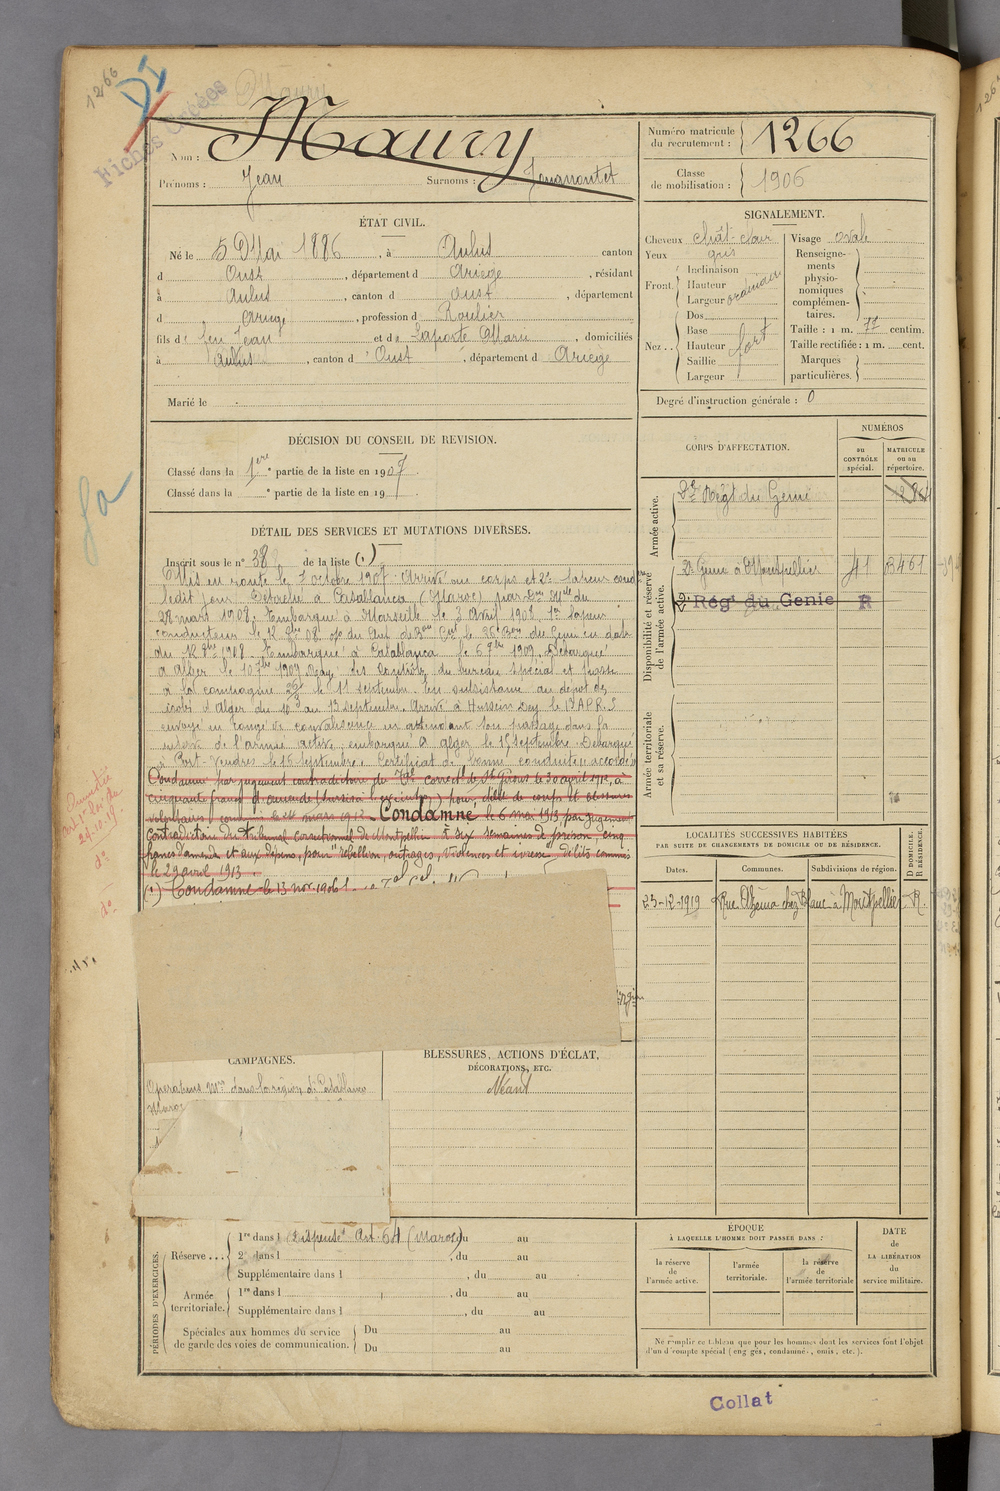 1266
DI
Fiches Créées
Maury
Nom : Maury
Prénoms : Jean Surnoms :
Numéro matricule du recrutement : 1266
Classe de mobilisation : 1906
ÉTAT CIVIL.
Né le 5 Mai 1886, à Aulus canton
d Oust, département d Ariège, résidant
à Aulus, canton d Oust, département
d Ariège, profession d Roulier
fils de feu Jean et de Laporte Marie, domiciliés
à Aulus, canton d Oust, département d Ariège
Marié le
SIGNALEMENT.
Cheveux chât-clair
Yeux gris
Front. Inclinaison
Hauteur
Largeur ordinaire
Nez.. Dos
Base
Hauteur fort
Saillie
Largeur
Visage ovale
Renseignements physionomiques complémentaires.
Taille : 1 m. 75 centim.
Taille rectifiée : 1 m. cent.
Marques particulières.
Degré d'instruction générale : 0
DÉCISION DU CONSEIL DE REVISION.
Classé dans la 1ere partie de la liste en 1907.
Classé dans la e partie de la liste en 19
DÉTAIL DES SERVICES ET MUTATIONS DIVERSES.
Inscrit sous le n° 38 de la liste (.)
Mis en route le 7 octobre 1907. Arrivé au corps et 2e sapeur cond
ledit jour. Détaché à Casablanca (Maroc) par du
28 mars 1908. Embarqué à Marseille le 3 avril 1908. 1er sapeur
conducteur le 12 08. du Gen en date
du 12 1908. Embarqué à Casablanca le 6 7bre 1909. Débarqué
à Alger le 10 7bre 1909. Rayé des contrôles du bureau spécial et passé
à la compagnie le 11 septembre. En subsistance au dépôt des
isolés d'Alger du 10 au 13 septembre. Arrivé à Hussein Dey le 13
envoyé en congé de convalescence en attendant son passage dans la
réserve de l'armée active, embarqué à Alger le 15 septembre. Débarqué
à Port-Vendres le 16 septembre. Certificat de bonne conduite "accordé"
Condamné par jugement contradictoire du Tal correctl de St Girons le 30 avril 1912, à
cinquante francs d'amende (sursis à l'exécution) pour délit de coups et blessures
volontaires commis le mars 1912. Condamné le 6 mai 1913 par jugement
contradictoire du tribunal correctionnel de Montpellier à six semaines de prison cinq
francs d'amende et aux dépens, pour "rébellion, outrages, violences et ivresse" délits commis
le 29 avril 1913.
(.) Condamné le 13 nov. 1906
Amnistié
art. 1er loi du
24.10.19.
do
do
CORPS D'AFFECTATION.
NUMÉROS
DU CONTRÔLE spécial.
MATRICULE ou au répertoire.
Armée active.
2e Régt du Génie
Disponibilité et réserve de l'armée active.
2e Génie à Montpellier 41 3461
2e Régt du Genie R
Armée territoriale et sa réserve.
LOCALITÉS SUCCESSIVES HABITÉES
PAR SUITE DE CHANGEMENTS DE DOMICILE OU DE RÉSIDENCE.
Dates. Communes. Subdivisions de région. D DOMICILE. R RÉSIDENCE.
23-12-1919 Rue Azéma chez Blanc à Montpellier R.
CAMPAGNES.
Opérations Mres dans la région de Casablanca
Maroc
BLESSURES, ACTIONS D'ÉCLAT,
DÉCORATIONS, ETC.
Néant
PÉRIODES D'EXERCICES.
Réserve... 1re dans l Dispensé Art. 64 (Maroc) du au
2e dans l , du au
Supplémentaire dans l , du au
Armée territoriale. 1re dans l , du au
Supplémentaire dans l , du au
Spéciales aux hommes du service de garde des voies de communication. Du au
Du au
ÉPOQUE
À LAQUELLE L'HOMME DOIT PASSER DANS :
la réserve de l'armée active.
l'armée territoriale.
la réserve de l'armée territoriale
DATE de LA LIBÉRATION du service militaire.
Ne remplir ce tableau que pour les hommes dont les services font l'objet
d'un décompte spécial (engagés, condamnés, omis, etc.).
Collat